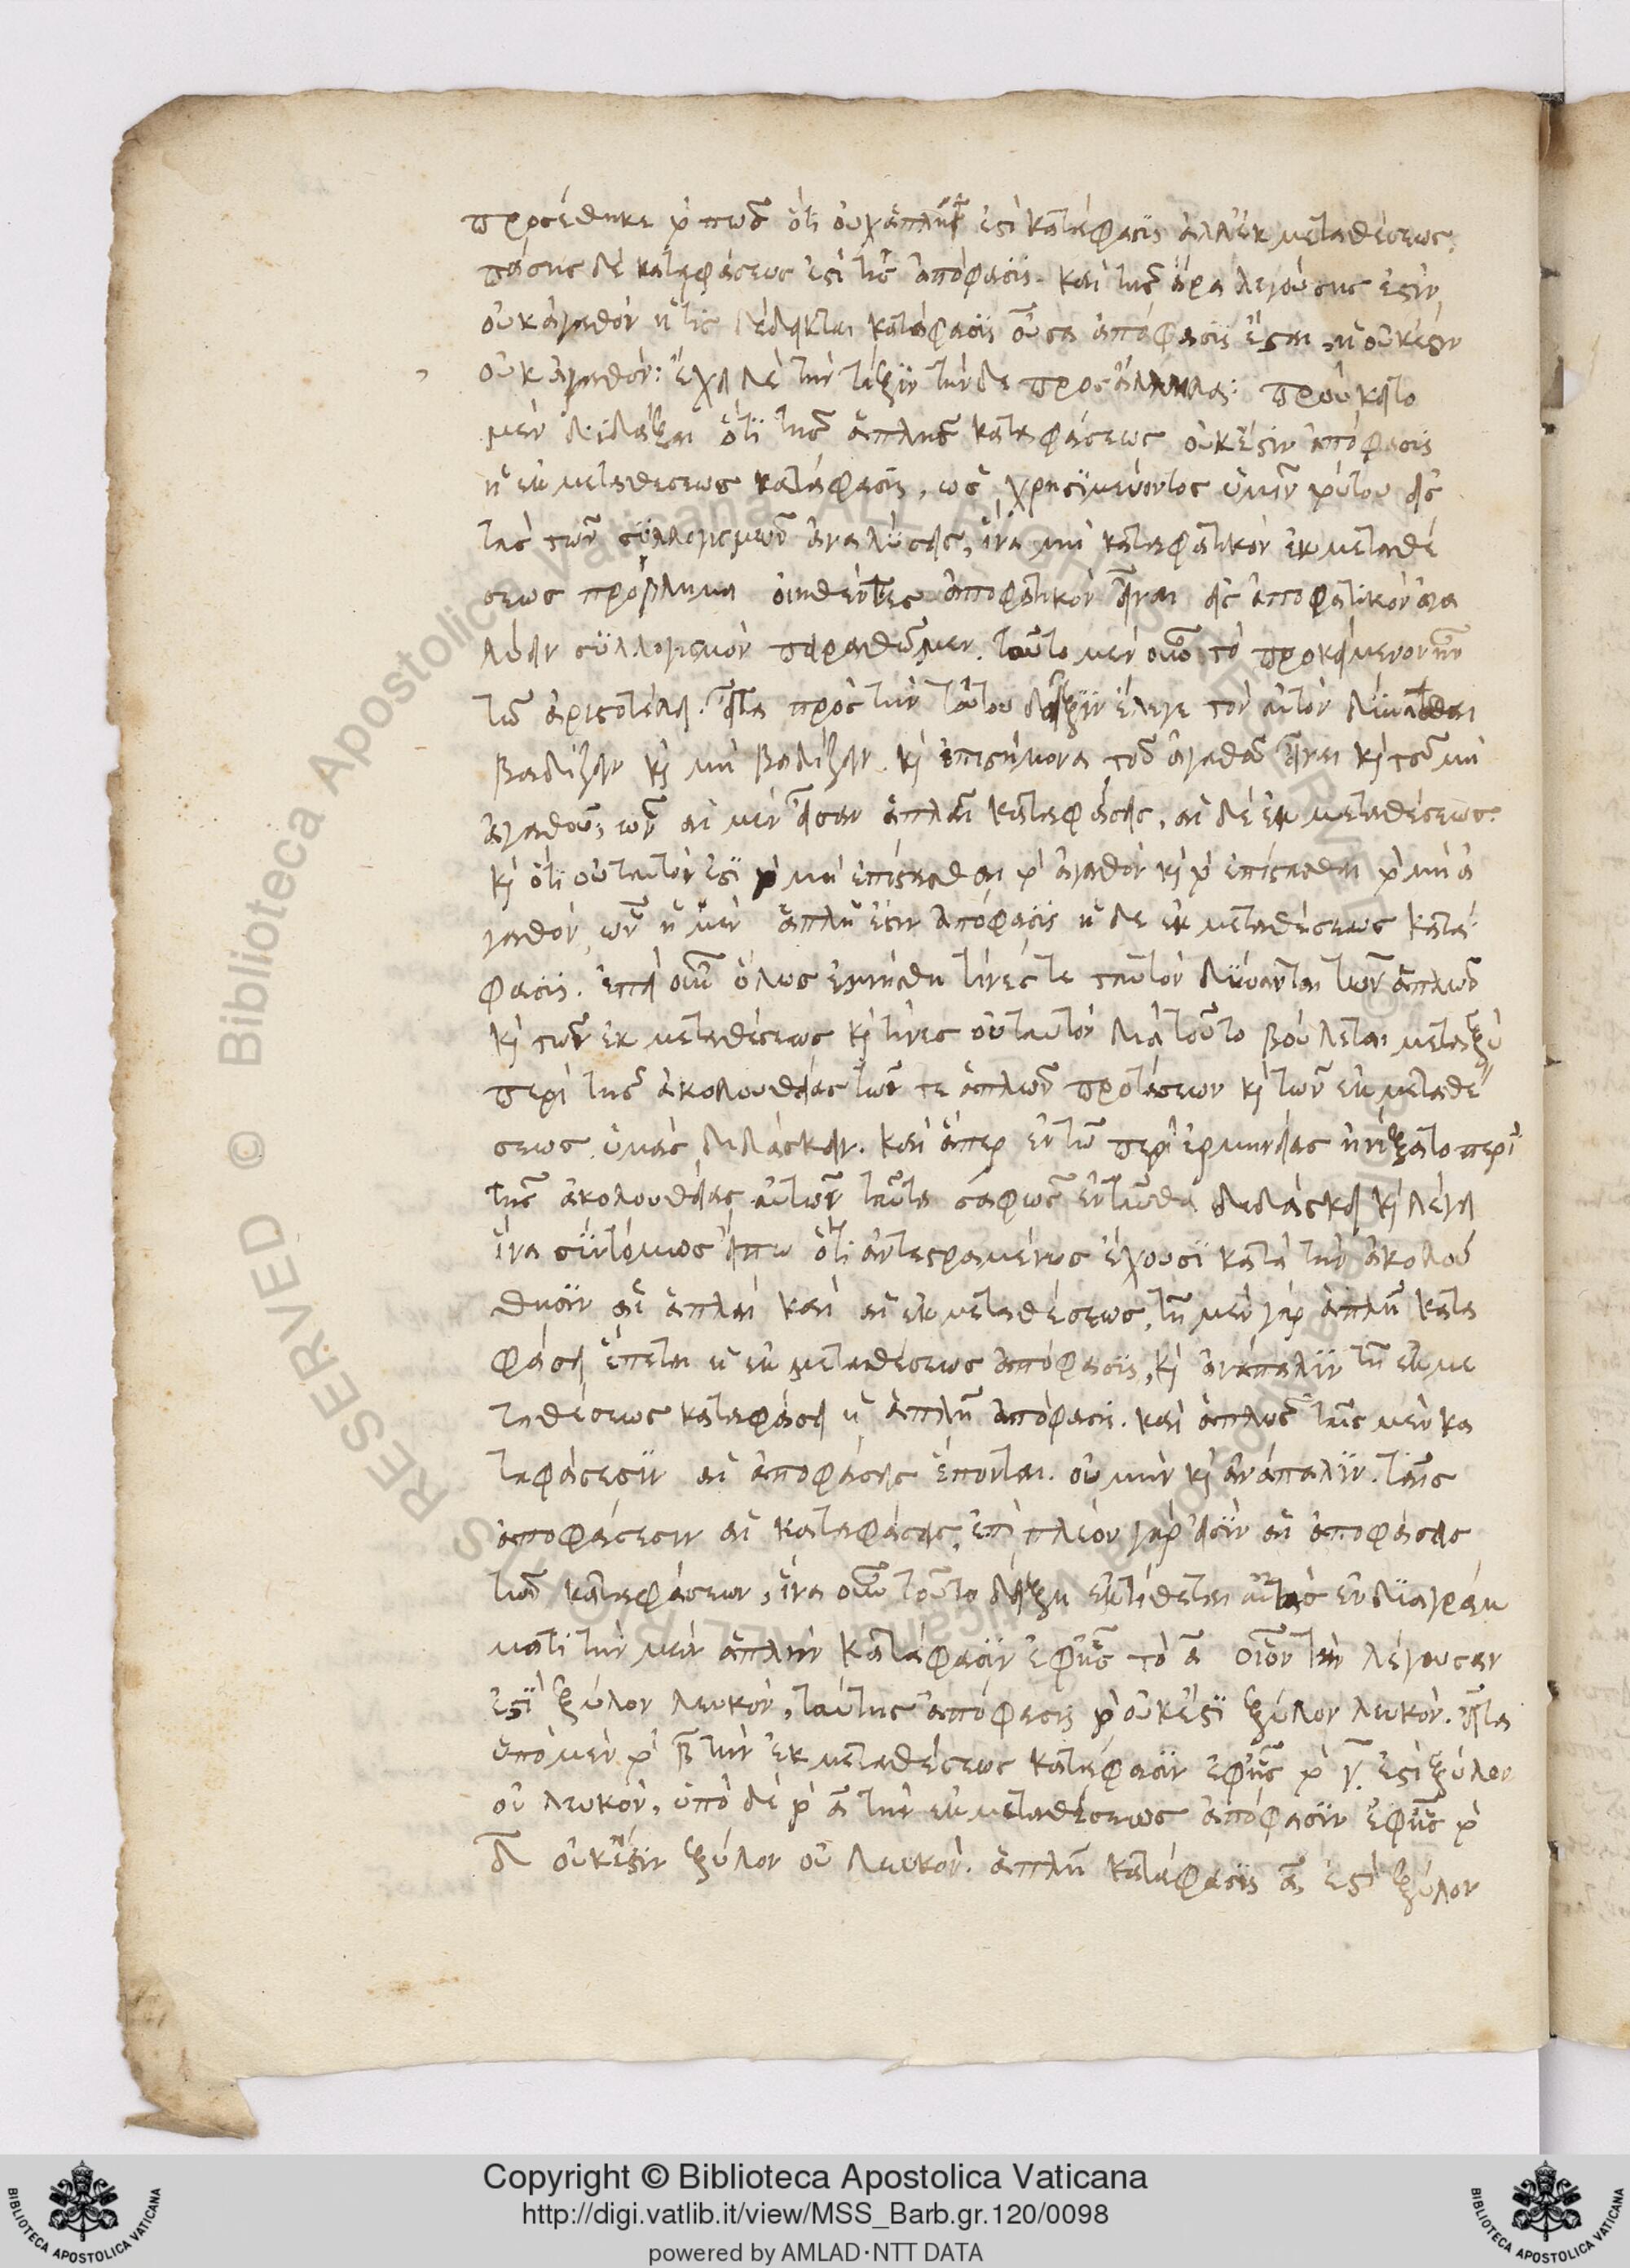 προσέθηκε τὸ πῶς ὅτι οὐχ ἁπλῆ ἐστὶ κατάφασις ἀλλ' ἐκ μεταθέσεως,
πάσης δὲ καταφάσεως ἐστί τις ἀπόφασις. καὶ τῆς ἄρα λεγούσης ἐστὶν
οὐκ ἀγαθὸν ἥτις δέδεικται κατάφασις οὖσα ἀπόφασις ἔσται, ἡ οὐκ ἔστιν
οὐκ ἀγαθόν: ἔχει δὲ τὴν τάξιν τήνδε πρὸς ἄλληλα: πρόκειται
μὲν διδάξαι ὅτι τῆς ἁπλῆς καταφάσεως οὐκ ἔστιν ἀπόφασις
ἡ ἐκ μεταθέσεως κατάφασις, ὡς χρησιμεύοντος ὑμῖν τούτου εἰς
τὰς τῶν συλλογισμῶν ἀναλύσεις, ἵνα μὴ καταφατικὸν ἐκ μεταθέ
σεως πρόβλημα οἰηθέντες ἀποφατικὸν εἶναι εἰς ἀποφατικὸν ἀνα
λύειν συλλογισμὸν πειραθῶμεν. τοῦτο μὲν οὖν τὸ προκείμενον ἦν
τῷ ἀριστοτέλει. εἶτα πρὸς τὴν τούτου δεῖξιν ἔλεγε τὸν αὐτὸν δύνασθαι
βαδίζειν καὶ μὴ βαδίζειν. καὶ ἐπιστήμονα τοῦ ἀγαθοῦ εἶναι καὶ τοῦ μὴ
ἀγαθοῦ, ὧν αἱ μὲν ἦσαν ἁπλαῖ καταφάσεις, αἱ δὲ ἐκ μεταθέσεως.
καὶ ὅτι οὐ ταυτόν ἐστι τὸ μὴ ἐπίστασθαι τὸ ἀγαθὸν καὶ τὸ ἐπίστασθαι τὸ μὴ ἀ
γαθόν, ὧν ἡ μὲν ἁπλῆ ἐστὶν ἀπόφασις ἡ δὲ ἐκ μεταθέσεως κατά
φασις. ἐπεὶ οὖν ὅλως ἐμνήσθη τίνές τε ταυτὸν δύνανται τῶν ἁπλῶν
καὶ τῶν ἐκ μεταθέσεως καὶ τίνες οὐ ταυτόν διὰ τοῦτο βούλεται μεταξὺ
περὶ τῆς ἀκολουθίας τῶν τε ἁπλῶν προτάσεων καὶ τῶν ἐκ μεταθέ
σεως ὑμᾶς διδάσκειν. καὶ ἅπερ ἐν τῷ περὶ ἑρμηνείας ᾐνίξατο περὶ
τῆς ἀκολουθίας αὐτῶν ταῦτα σαφῶς ἐνταῦθα διδάσκει καὶ λέγει
ἵνα συντόμως εἴπω ὅτι ἀντεστραμμένως ἔχουσι κατὰ τὴν ἀκολού
θησιν αἱ ἁπλαῖ καὶ αἱ ἐκ μεταθέσεως, τῇ μὲν γὰρ ἁπλῇ κατα
φάσει ἕπεται ἡ ἐκ μεταθέσεως ἀπόφασις, καὶ ἀνάπαλιν τῇ ἐκ με
ταθέσεως καταφάσει ἡ ἁπλῆ ἀπόφασις. καὶ ἁπλῶς ταῖς μὲν κα
ταφάσεσιν αἱ ἀποφάσεις ἕπονται. οὐ μὴν καὶ ἀνάπαλιν. ταῖς
ἀποφάσεσιν αἱ καταφάσεις, ἐπὶ πλέον γάρ εἰσιν αἱ ἀποφάσεις
τῶν καταφάσεων, ἵνα οὖν τοῦτο δείξη ἐκτίθεται αὐτὰς ἐν διαγράμ
ματι τὴν μὲν ἁπλῆν κατάφασιν ἐφ' ἧς τὸ α οἷον τὴν λέγουσαν
ἐστὶ ξύλον λευκόν, ταύτης ἀπόφασις τὸ οὐκ ἔστι ξύλον λευκόν. εἶτα
ὑπὸ μὲν τὸ β τὴν ἐκ μεταθέσεως κατάφασιν ἐφ' ἧς τὸ γ. ἐστὶ ξύλον
οὐ λευκόν, ὑπὸ δὲ τὸ α τὴν ἐκ μεταθέσεως ἀπόφασιν ἐφ' ἧς τὸ
δ οὐκ ἔστιν ξύλον οὐ λευκόν. ἁπλῆ κατάφασις α, ἐστὶ ξύλον
Copyright © Biblioteca Apostolica Vaticana
http://digi.vatlib.it/view/MSS_Barb.gr.120/0098
powered by AMLAD·NTT DATA